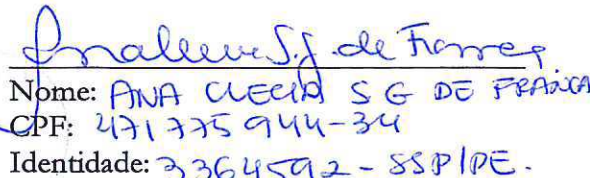 S.G. de França
Nome: ANA CLECIA S G DE FRANÇA
CPF: 471775944-34
Identidade: 3364592 - SSP/PE.